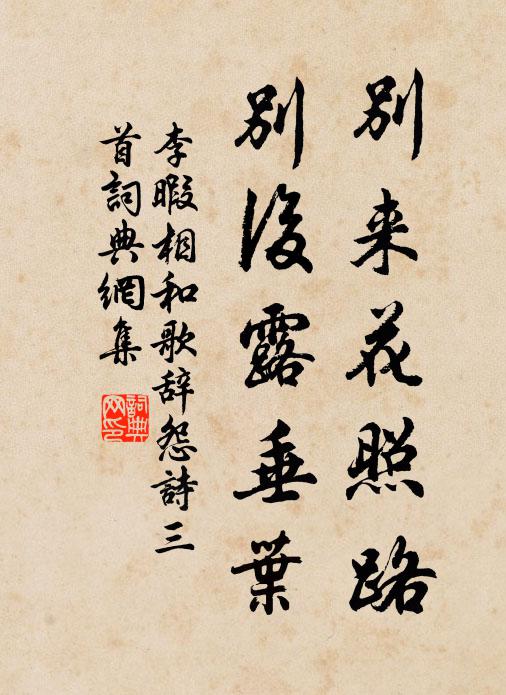 别来花照路
别后露垂葉
李暇相和歌辞怨詩三
首詞典網集
詞典
网印